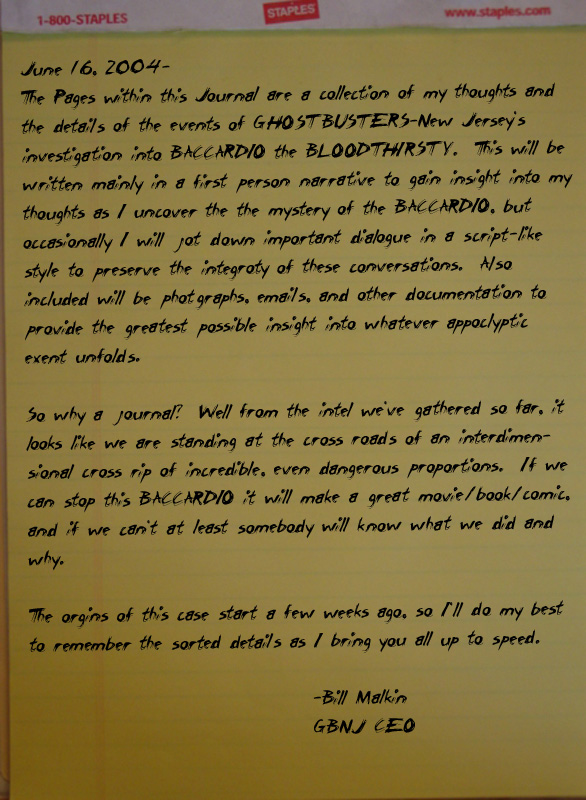 1-800-STAPLES
STAPLES
www.staples.com
June 16, 2004-
The Pages within this Journal are a collection of my thoughts and
the details of the events of GHOSTBUSTERS-New Jersey's
investigation into BACCARDIO the BLOODTHIRSTY. This will be
written mainly in a first person narrative to gain insight into my
thoughts as I uncover the the mystery of the BACCARDIO, but
occasionally I will jot down important dialogue in a script-like
style to preserve the integroty of these conversations. Also
included will be photgraphs, emails, and other documentation to
provide the greatest possible insight into whatever appoclyptic
exent unfolds.
So why a journal? Well from the intel we've gathered so far, it
looks like we are standing at the cross roads of an interdimen-
sional cross rip of incredible, even dangerous proportions. If we
can stop this BACCARDIO it will make a great movie/book/comic,
and if we can't at least somebody will know what we did and
why.
The orgins of this case start a few weeks ago, so I'll do my best
to remember the sorted details as I bring you all up to speed.
-Bill Malkin
GBNJ CEO